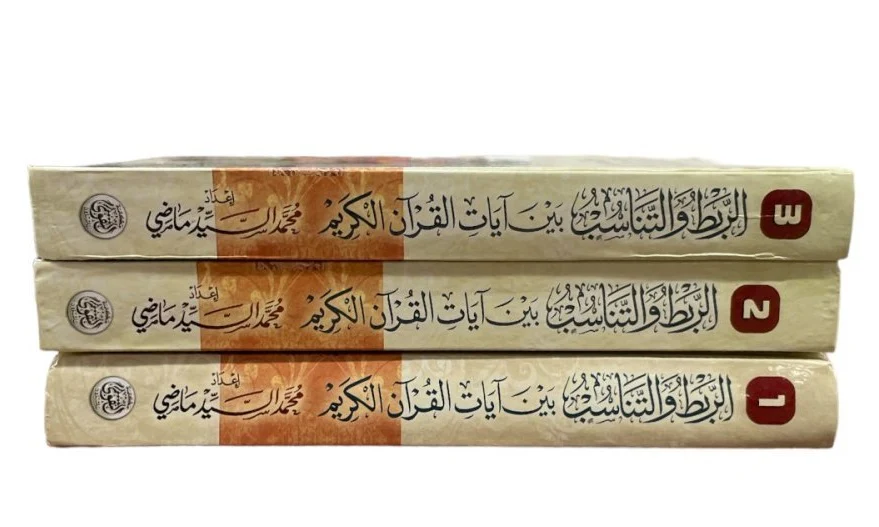 3
الرَّبْطُ وَالتَّنَاسُبُ بَيْنَ آيَاتِ القُرْآنِ الكَرِيْمِ
إِعْدَادُ
مُحَمَّد السَّيِّد مَاضِي
2
الرَّبْطُ وَالتَّنَاسُبُ بَيْنَ آيَاتِ القُرْآنِ الكَرِيْمِ
إِعْدَادُ
مُحَمَّد السَّيِّد مَاضِي
1
الرَّبْطُ وَالتَّنَاسُبُ بَيْنَ آيَاتِ القُرْآنِ الكَرِيْمِ
إِعْدَادُ
مُحَمَّد السَّيِّد مَاضِي